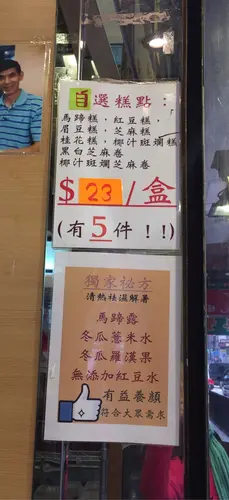 自選糕點：
馬蹄糕，紅豆糕，
眉豆糕，芝麻糕
桂花糕，椰汁斑斕糕
黑白芝麻卷
椰汁斑斕芝麻卷
$23/盒
(有5件!!)
獨家祕方
清熱祛濕解暑
馬蹄露
冬瓜薏米水
冬瓜羅漢果
無添加紅豆水
有益養顏
符合大眾需求